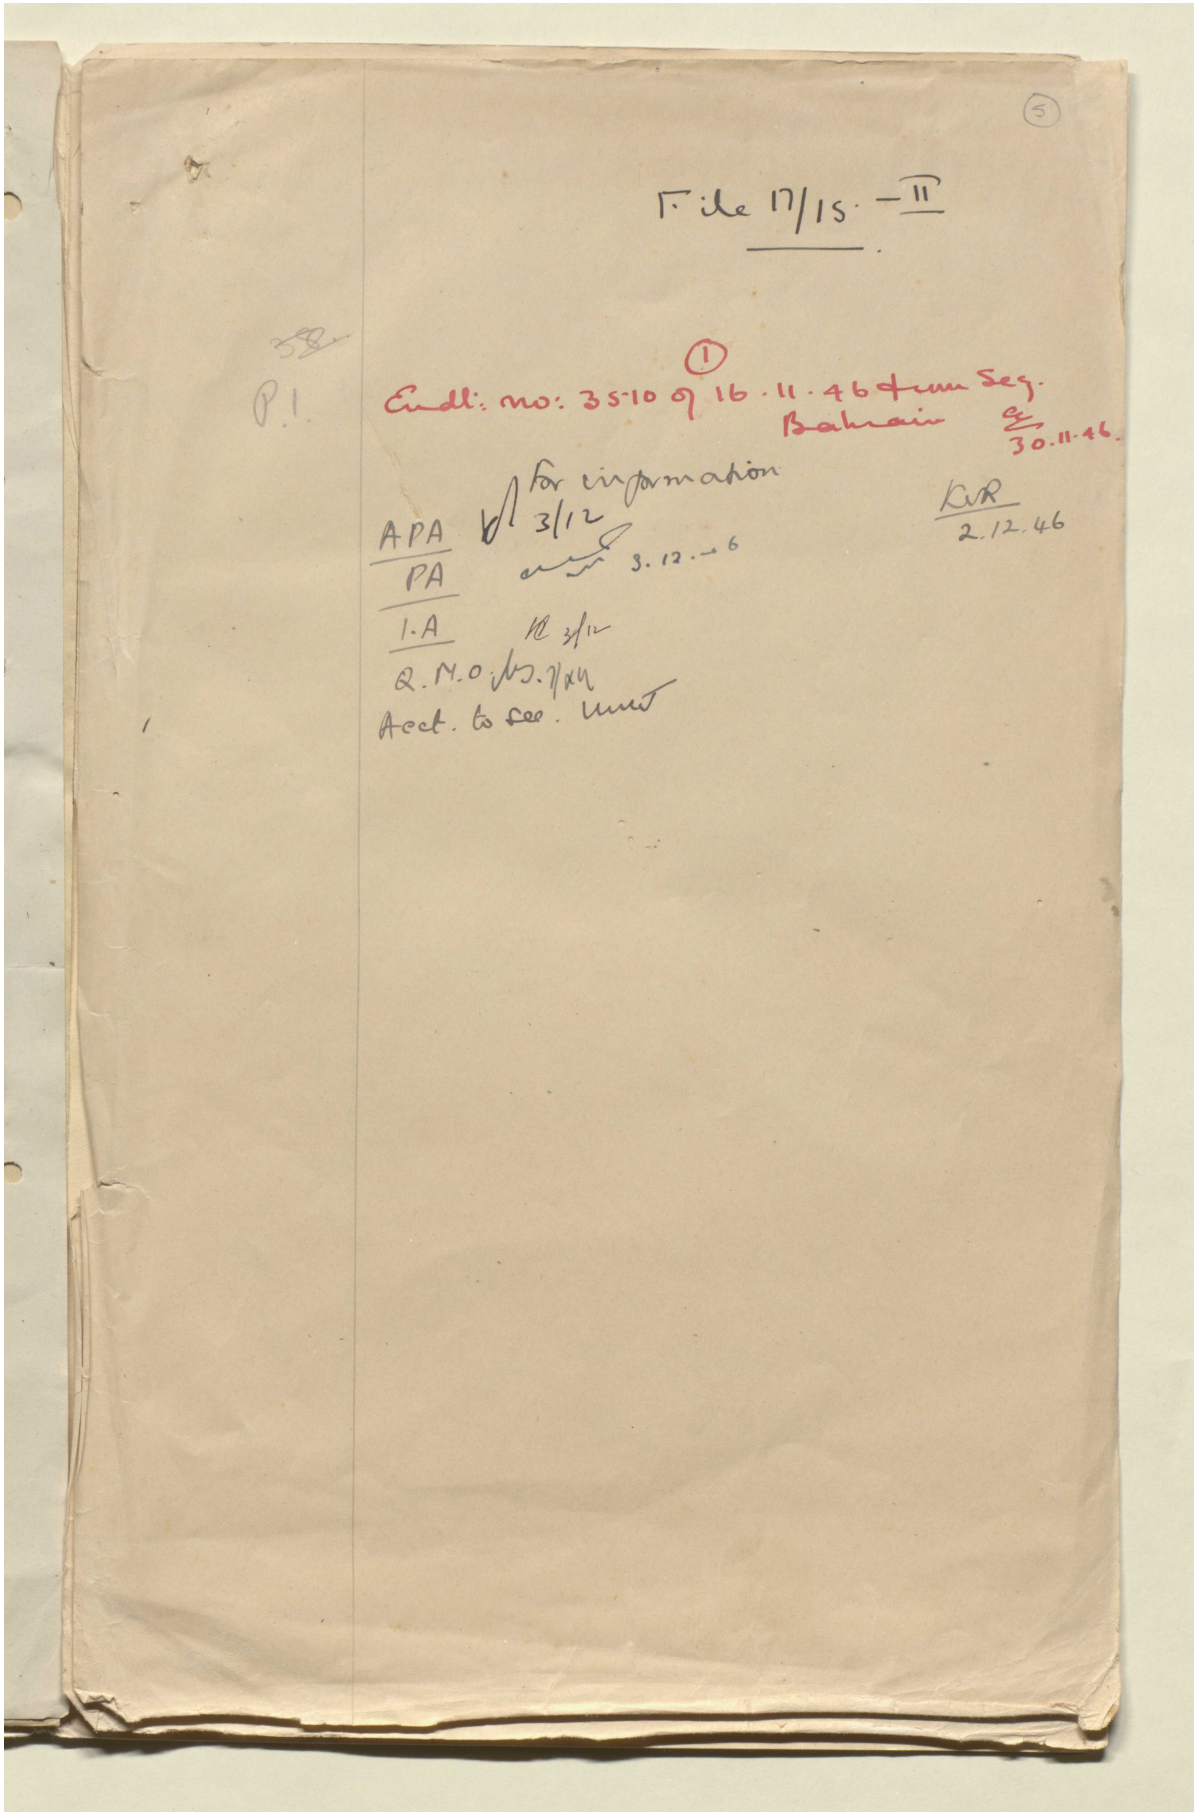 5
File 17/15. - II
358
P.1.
1
Endt: no: 3510 of 16.11.46 from Seq.
Bahrain
30.11.46.
For information
KVR
2.12.46
APA 3/12
PA 3.12.46
I.A 3/12
Q.M.O.
Acct. to see.